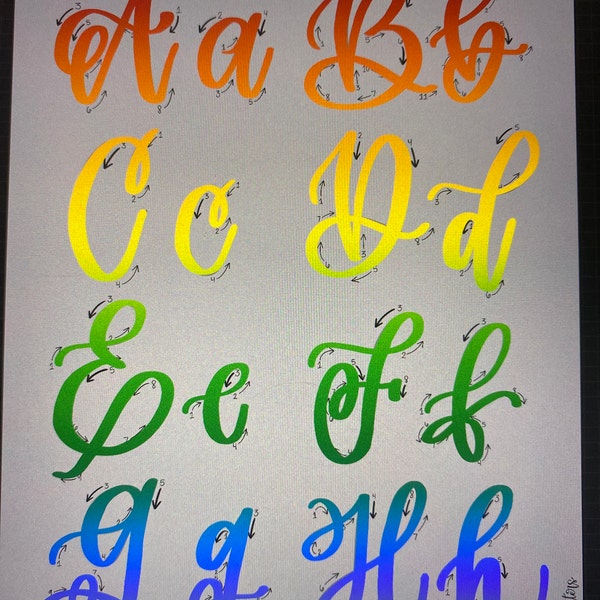 A a B b
C c D d
E e F f
G g H h